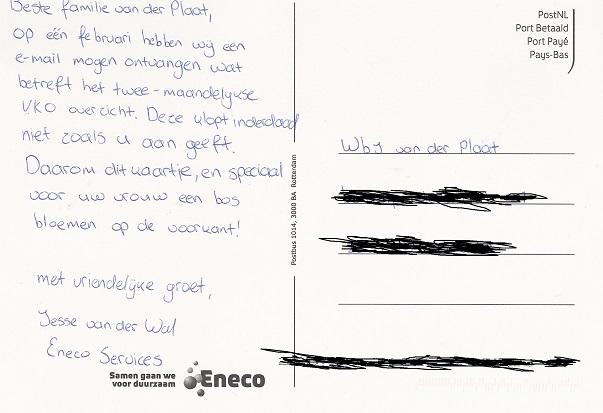 Beste familie van der Plaat,
op één februari hebben wij een
e-mail mogen ontvangen wat
betreft het twee-maandelijkse
VKO overzicht. Deze klopt inderdaad
niet zoals u aan geeft.
Daarom dit kaartje, en speciaal
voor uw vrouw een bos
bloemen op de voorkant!
met vriendelijke groet,
Jesse van der Wal
Eneco Services
Samen gaan we
voor duurzaam
Eneco
Postbus 1014, 3000 BA Rotterdam
PostNL
Port Betaald
Port Payé
Pays-Bas
WbJ van der Plaat